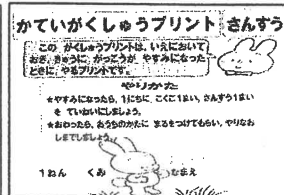 かていがくしゅうプリント さんすう
この がくしゅうプリントは、いえにおいて
おき、きゅうに がっこうが やすみになった
ときに、やるプリントです。
やりかた
★やすみになったら、1にちに、こくご1まい、さんすう1まい
を ていねいにしましょう。
★おわったら、おうちのかたに まるをつけてもらい、やりなお
しまでしましょう。
1ねん くみ なまえ